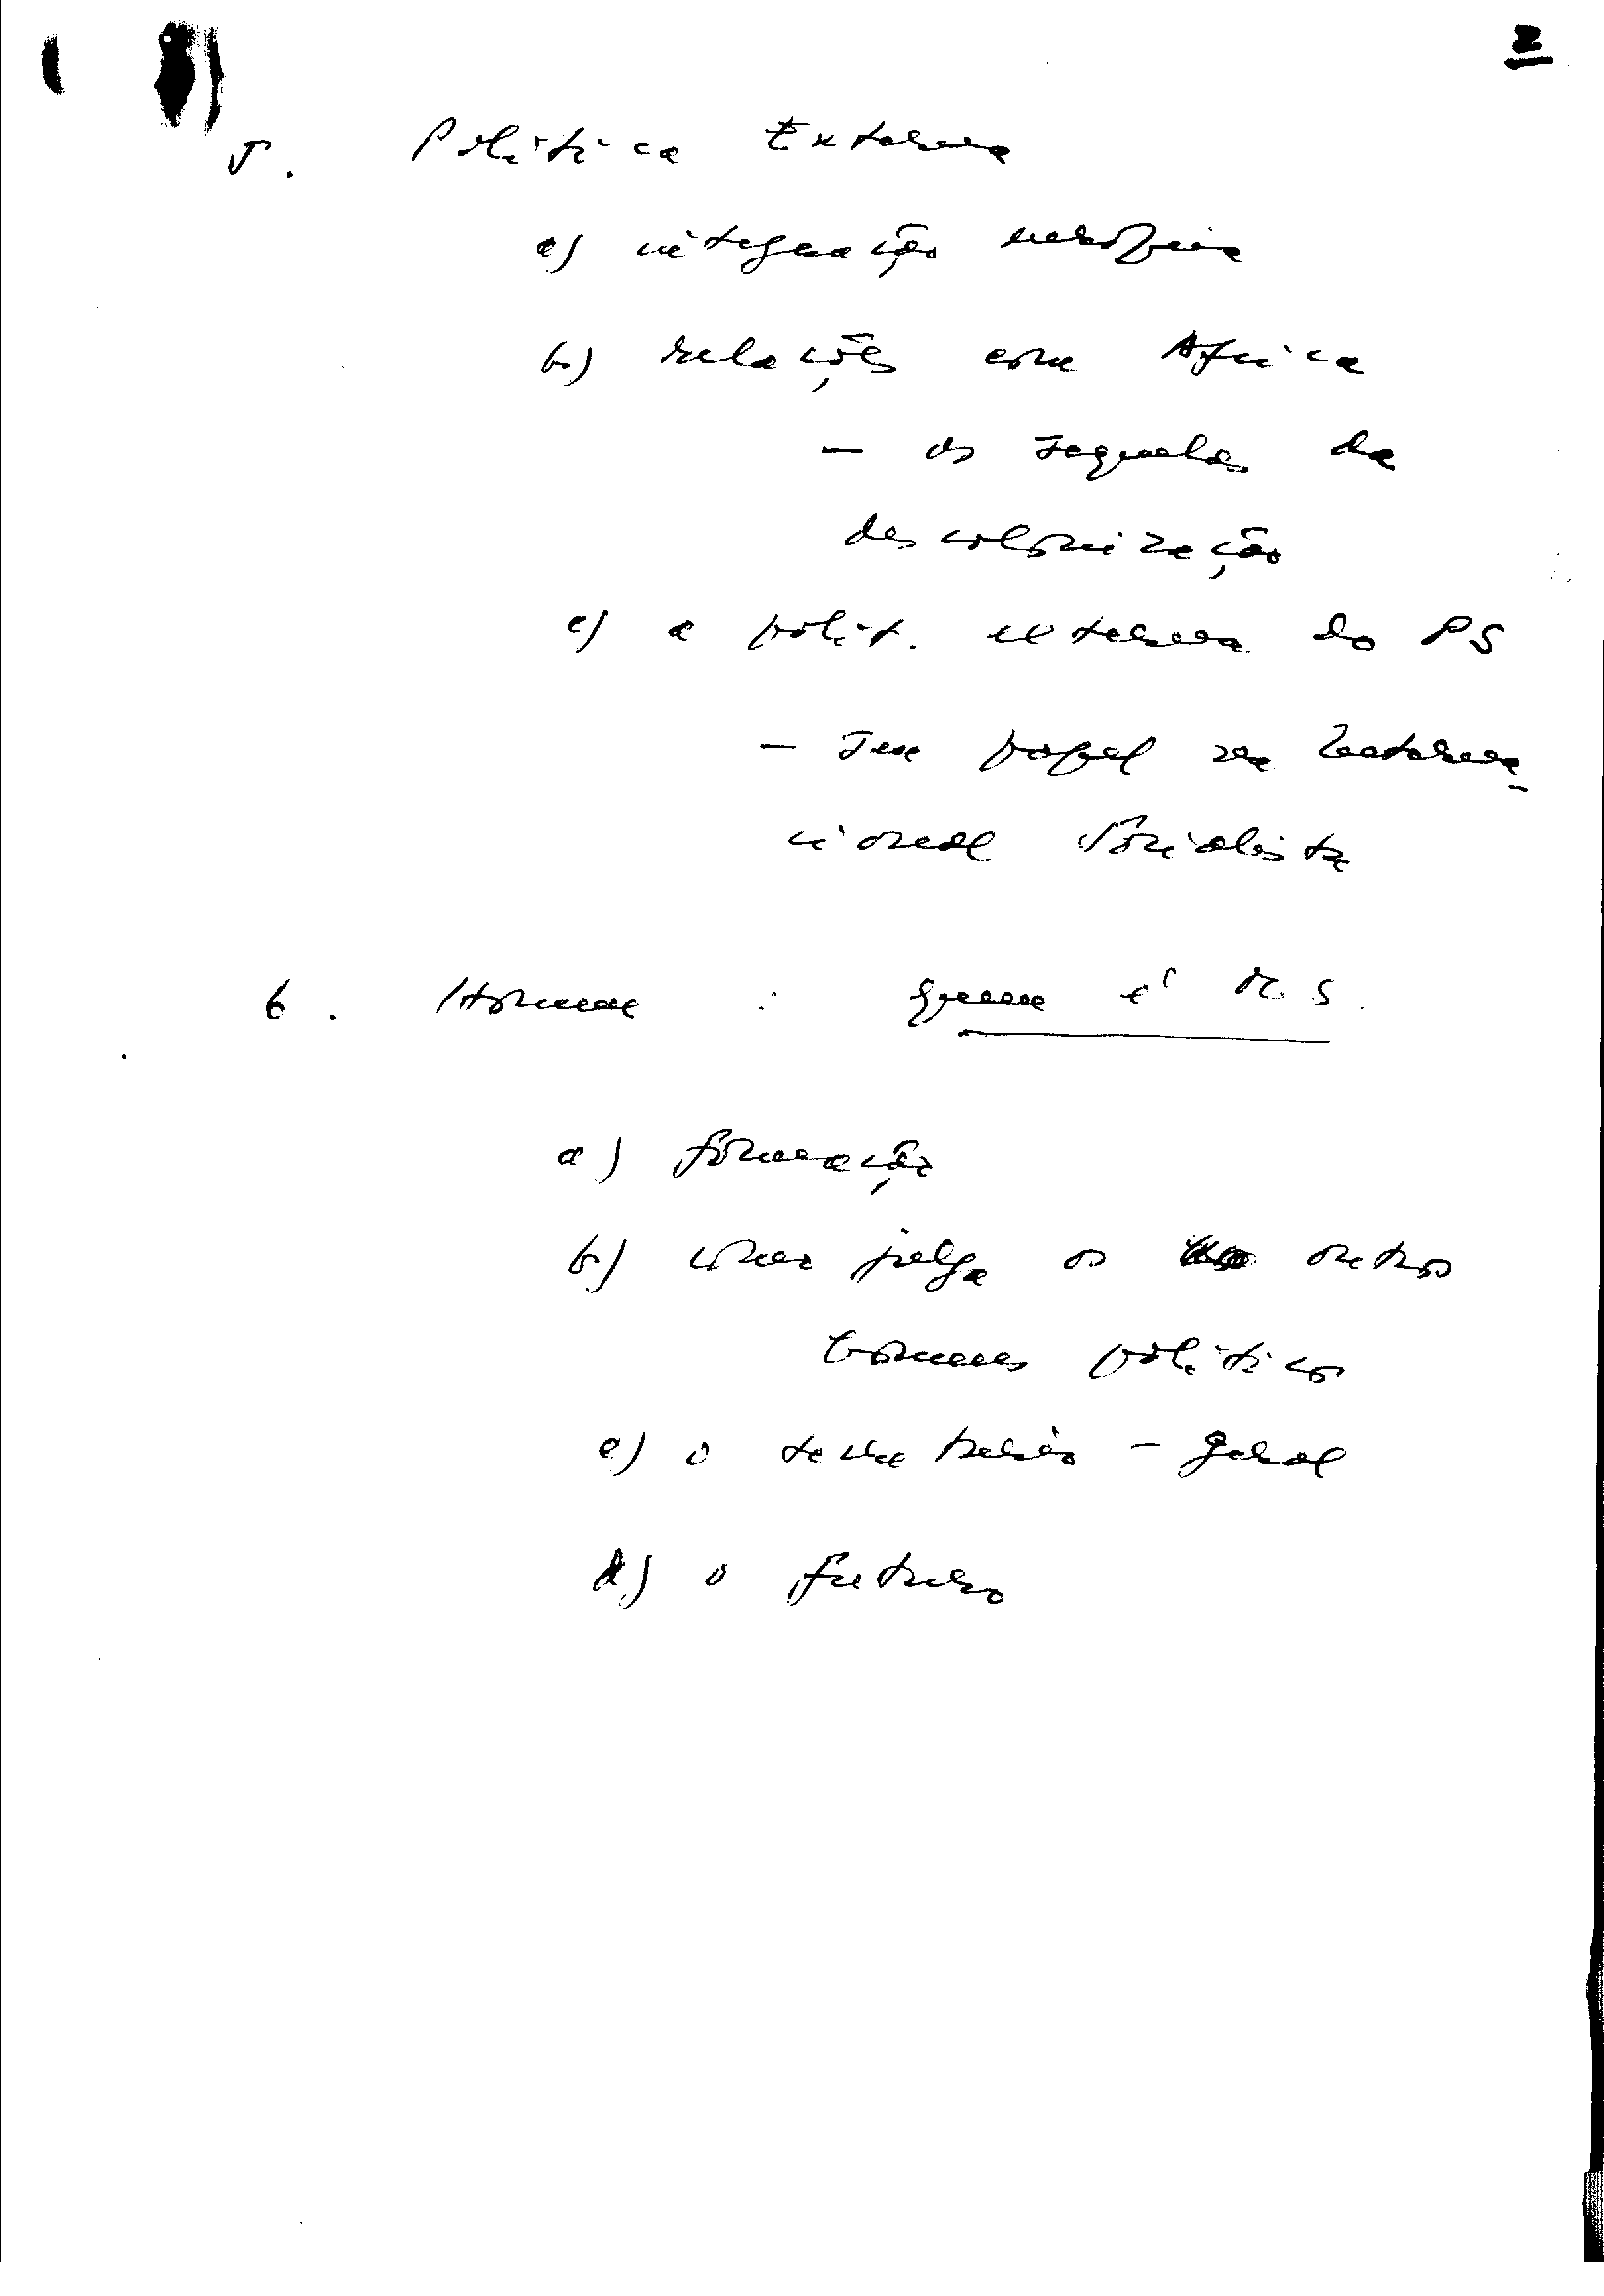 2
5. Politica Externa
a) integração europeia
b) relações com Africa
- as sequelas da
descolonização
c) a polit. externa do PS
- seu papel na Interna-
cional Socialista
6. Homem : Quem é M. S.
a) formação
b) como julga os outros
homens politicos
c) o secretário-geral
d) o futuro